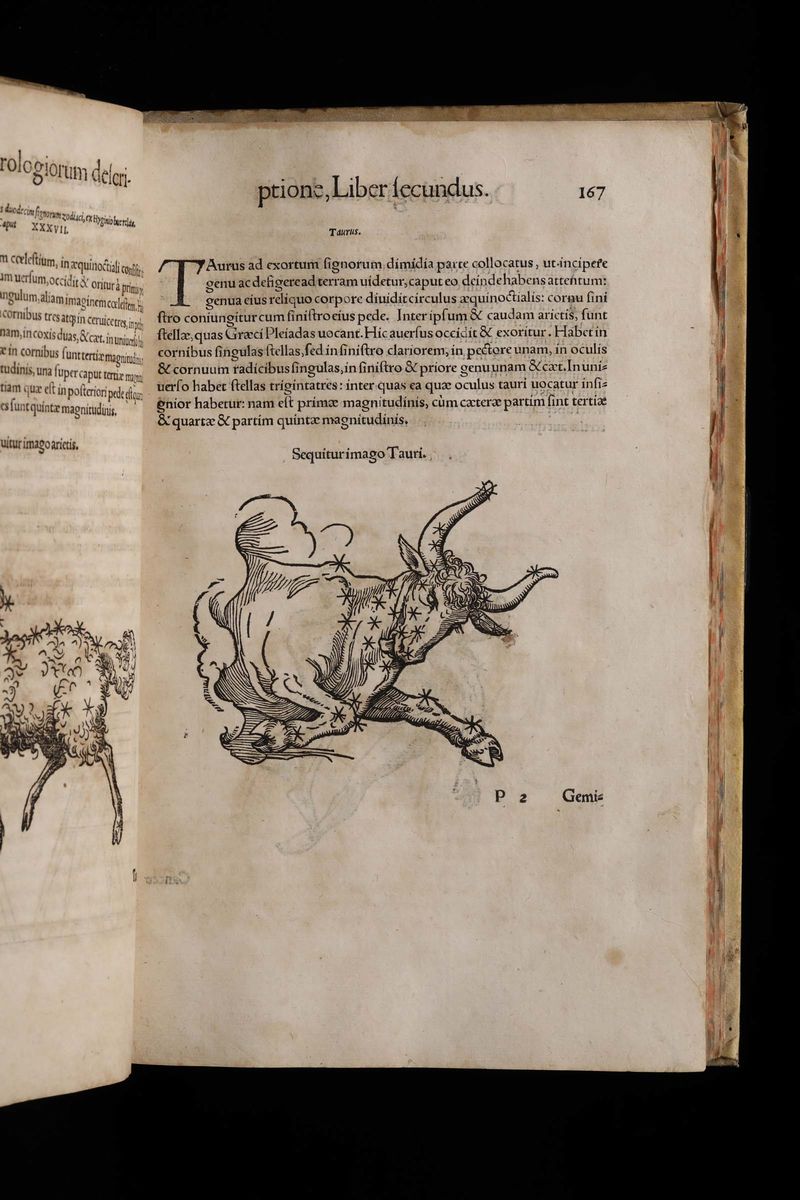 rologiorum descri-
XXXVII.
m cœlestium, in æquinoctiali
um uersum, occidit & oritur à
ngulum, aliam imaginem
cornibus tres atq; in ceruice tres,
nam, in coxis duas, & cæt. in
in cornibus sunt tertiæ
tudinis, una super caput tertiæ
tiam quæ est in posteriori pede
es sunt quintæ magnitudinis.
uitur imago arietis.
ptione, Liber secundus. 167
Taurus.
TAurus ad exortum signorum dimidia parte collocatus, ut incipere
genu ac defigere ad terram uidetur, caput eo deinde habens attentum:
genua eius reliquo corpore diuidit circulus æquinoctialis: cornu sini
stro coniungitur cum sinistro eius pede. Inter ipsum & caudam arietis, sunt
stellæ, quas Græci Pleiadas uocant. Hic auersus occidit & exoritur. Habet in
cornibus singulas stellas, sed in sinistro clariorem, in pectore unam, in oculis
& cornuum radicibus singulas, in sinistro & priore genu unam & cæt. In uni=
uerso habet stellas triginta tres: inter quas ea quæ oculus tauri uocatur insi=
gnior habetur: nam est primæ magnitudinis, cùm cæteræ partim sint tertiæ
& quartæ & partim quintæ magnitudinis.
Sequitur imago Tauri.
P 2 Gemi=